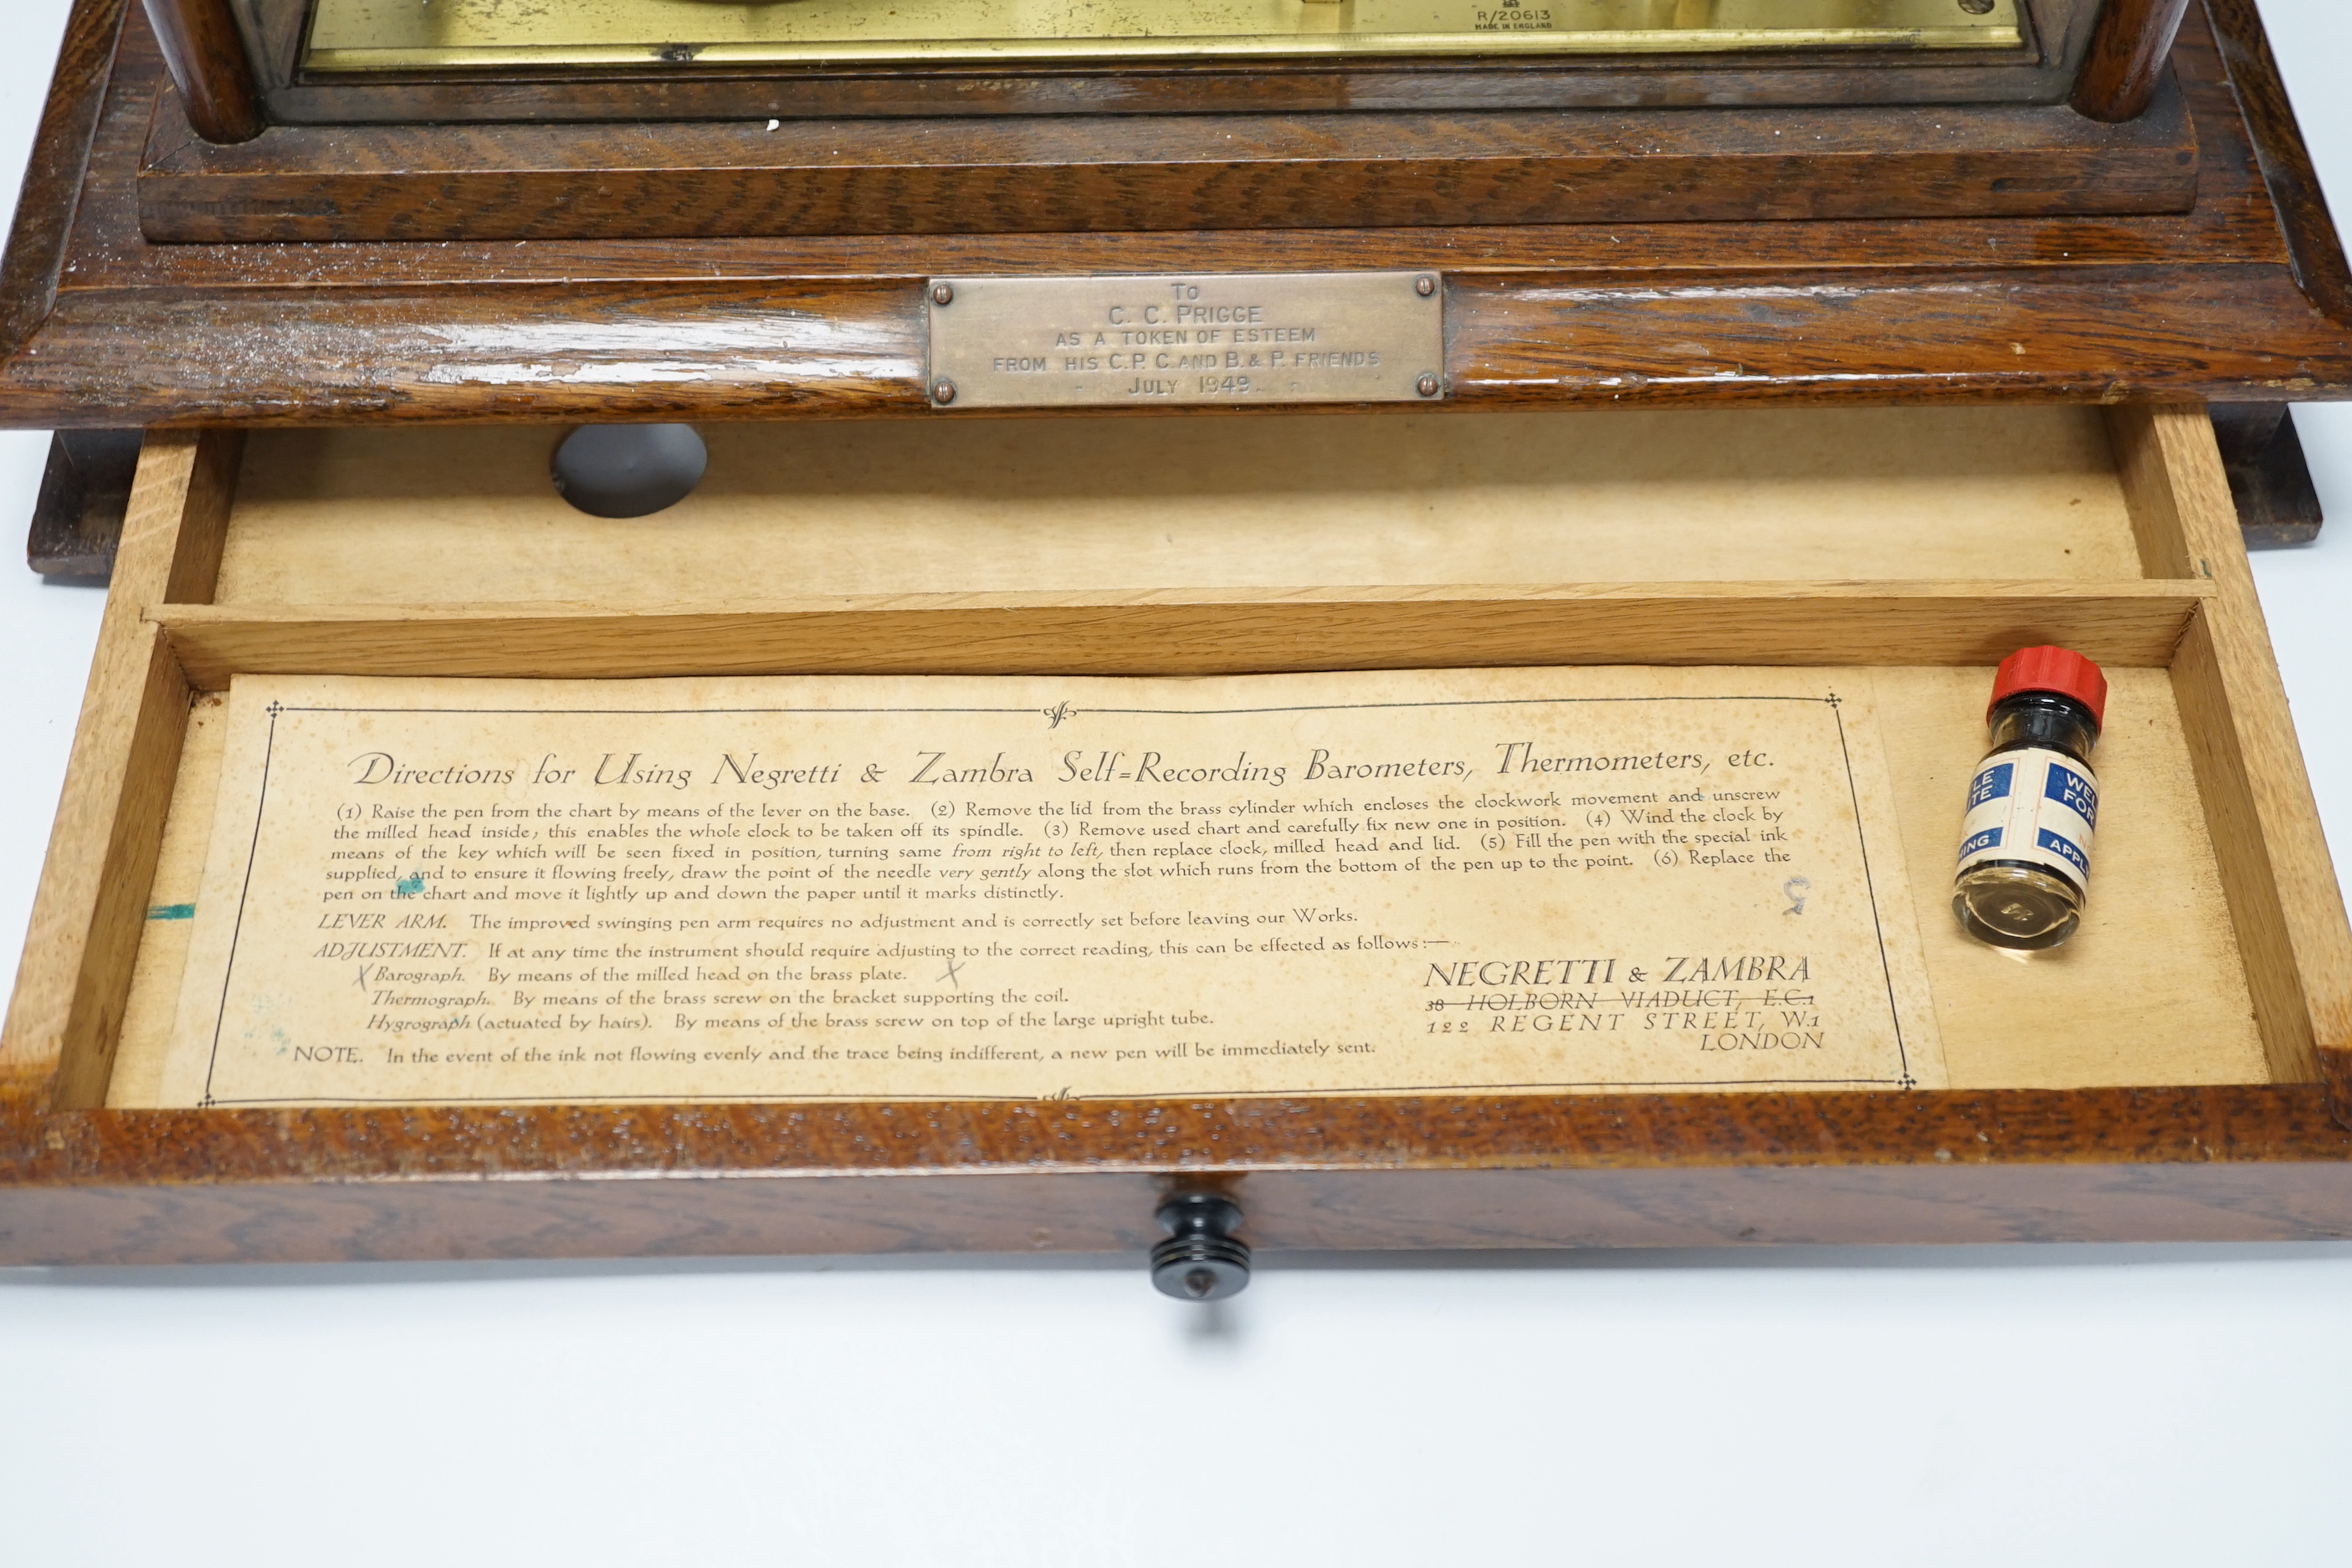 R/20613
MADE IN ENGLAND
To
C. C. PRIGGE
AS A TOKEN OF ESTEEM
FROM HIS C.P.C. AND B. & P. FRIENDS
JULY 1949.
Directions for Using Negretti & Zambra Self=Recording Barometers, Thermometers, etc.
(1) Raise the pen from the chart by means of the lever on the base. (2) Remove the lid from the brass cylinder which encloses the clockwork movement and unscrew
the milled head inside; this enables the whole clock to be taken off its spindle. (3) Remove used chart and carefully fix new one in position. (4) Wind the clock by
means of the key which will be seen fixed in position, turning same from right to left, then replace clock, milled head and lid. (5) Fill the pen with the special ink
supplied, and to ensure it flowing freely, draw the point of the needle very gently along the slot which runs from the bottom of the pen up to the point. (6) Replace the
pen on the chart and move it lightly up and down the paper until it marks distinctly.
LEVER ARM. The improved swinging pen arm requires no adjustment and is correctly set before leaving our Works.
ADJUSTMENT. If at any time the instrument should require adjusting to the correct reading, this can be effected as follows:—
X Barograph. By means of the milled head on the brass plate. X
Thermograph. By means of the brass screw on the bracket supporting the coil.
Hygrograph (actuated by hairs). By means of the brass screw on top of the large upright tube.
NOTE. In the event of the ink not flowing evenly and the trace being indifferent, a new pen will be immediately sent.
NEGRETTI & ZAMBRA
38 HOLBORN VIADUCT, E.C.1
122 REGENT STREET, W.1
LONDON